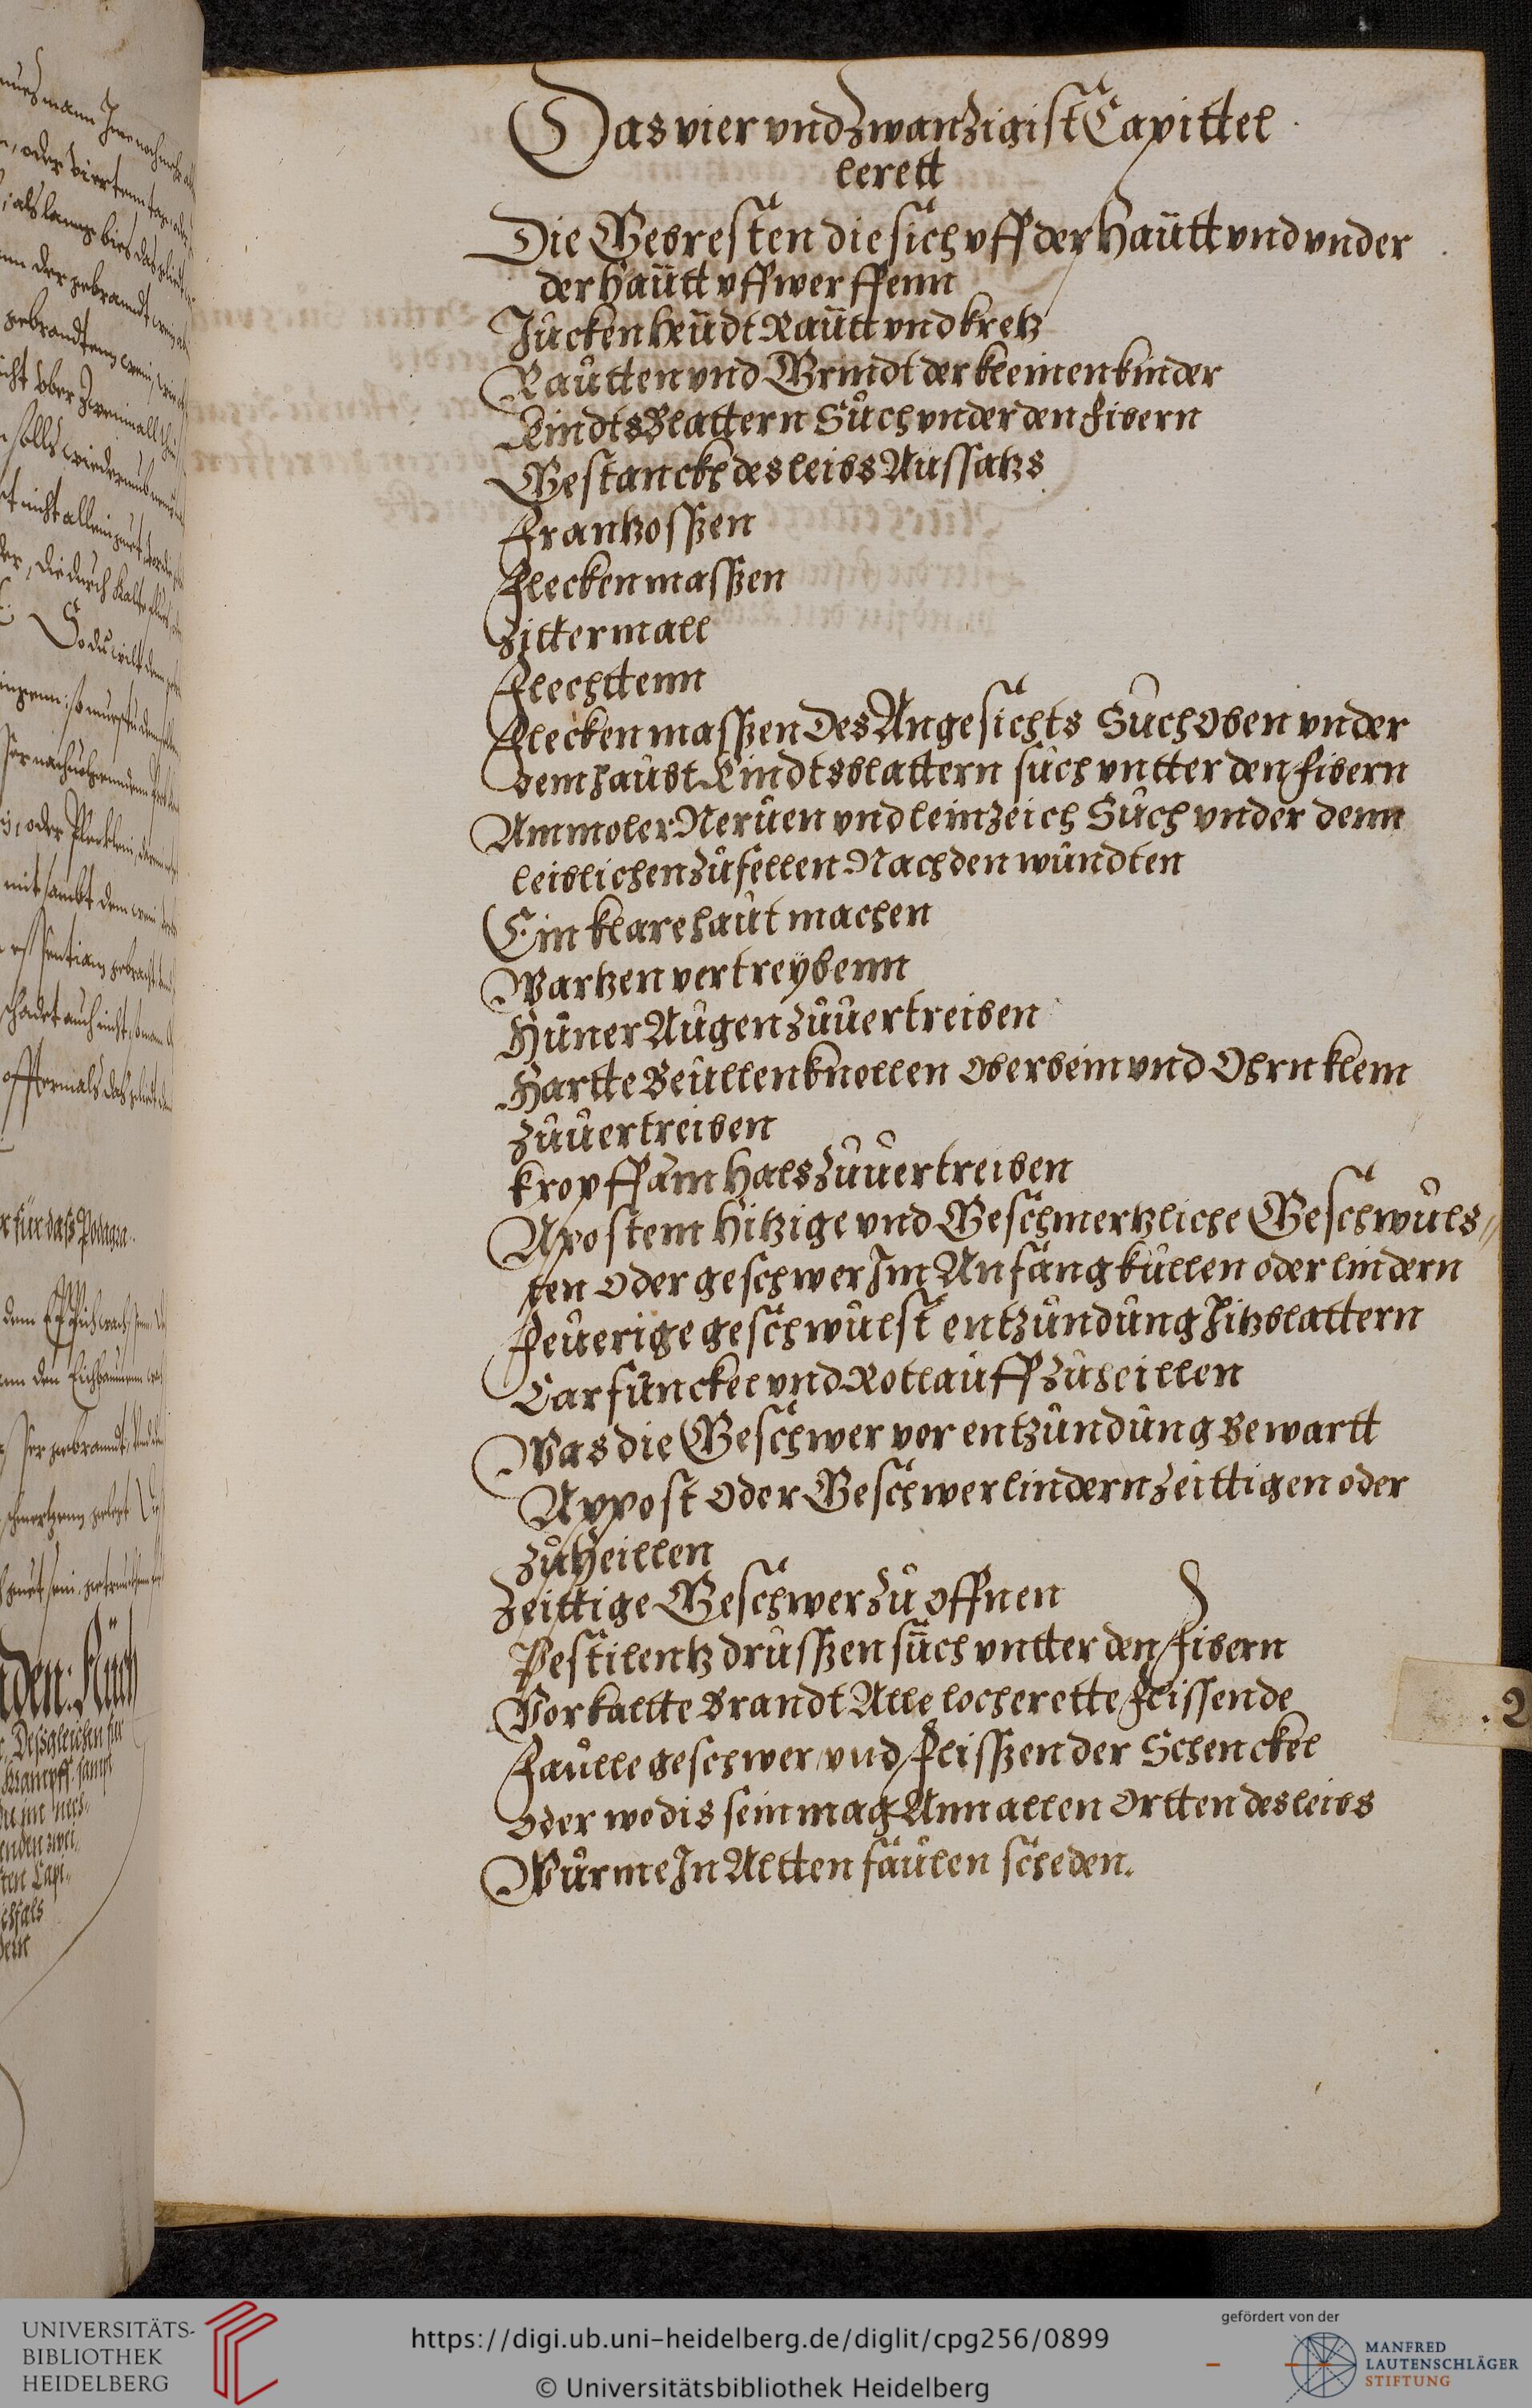 Das vier und Zwanzigist Capittel
lerett
Die Gebresten die sich uff der Hautt vnd vnder
der hautt uffwerffenn
Jucken heudt Rautt vnd kretz
Rautten vnd Grindt der kleinen kinder
Kindtsblattern Such vnder den fibern
Gestanckh des leibs Aussatzs
Frantzossen
Flecken massen
Zittermall
Flechttenn
Flecken massen Des Angesichts Such Oben vnder
dem haubt Kindtsblattern such vntter den fibern
Ammoler Neruen vnd leinzeich Such vnder denn
leiblichen Zufellen Nach den wundten
Ein klare haut machen
Wartzen vertreybenn
Huner Augen zuuertreiben
Hartte Beullen knellen Oberbein vnd Ohrn klem
zuuertreiben
kropff am Hals zuuertreiben
Apostem hitzige vnd Geschmertzliche Geschwuls„
ten Oder geschwer Im Anfang kullen oder lindern
Feuerige geschwulst entzundung hitzblattern
Carfunckel vnd Rotlauff Zuheillen
Was die Geschwer vor entzundung bewartt
Appost Oder Geschwer lindern Zeittigen oder
zu Heillen
Zeittige Geschwer zu offnen
Pestilentz drussen such vntter den fibern
Vor kaltte brandt Alle locherette flissende
Faulle geschwer vnd flissen der Schenckel
Oder we dis sein mag Ann allen Ortten des leibs
Wurme In Altten faulen scheden.
.2
UNIVERSITÄTS-
BIBLIOTHEK
HEIDELBERG
https://digi.ub.uni-heidelberg.de/diglit/cpg256/0899
© Universitätsbibliothek Heidelberg
gefördert von der
MANFRED
LAUTENSCHLÄGER
STIFTUNG